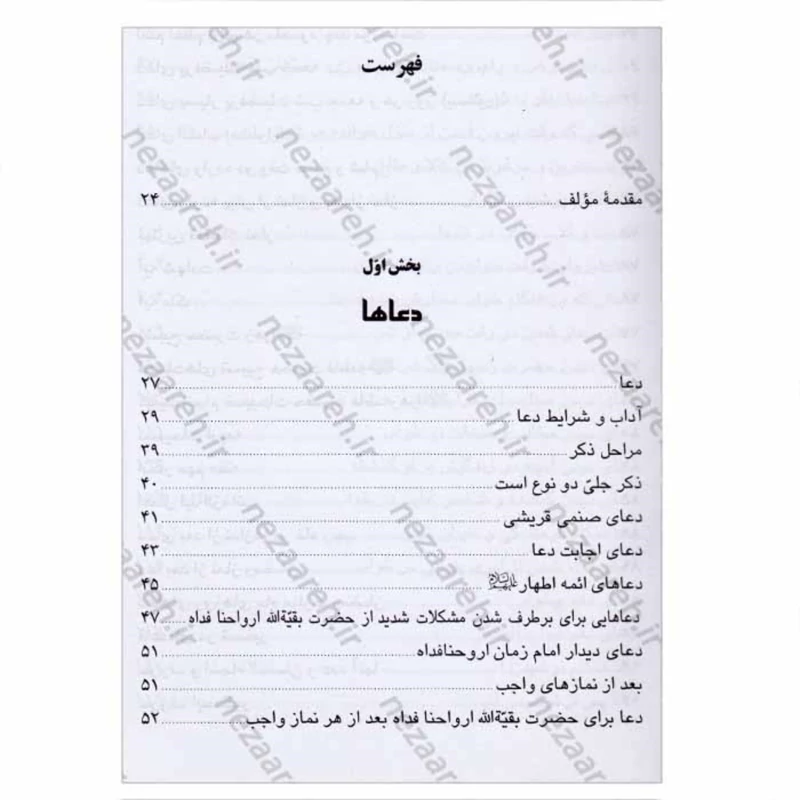 فهرست
مقدمهٔ مؤلف ........ ۲۴
بخش اوّل
دعاها
دعا ........ ۲۷
آداب و شرایط دعا ........ ۲۹
مراحل ذکر ........ ۳۹
ذکر جلیّ دو نوع است ........ ۴۰
دعای صنمی قریشی ........ ۴۱
دعای اجابت دعا ........ ۴۳
دعاهای ائمه اطهار علیهم‌السلام ........ ۴۵
دعاهایی برای برطرف شدن مشکلات شدید از حضرت بقیّةالله ارواحنا فداه ۴۷
دعای دیدار امام زمان اروحنافداه ........ ۵۱
بعد از نمازهای واجب ........ ۵۱
دعا برای حضرت بقیّةالله ارواحنا فداه بعد از هر نماز واجب ........ ۵۲
nezaareh.ir